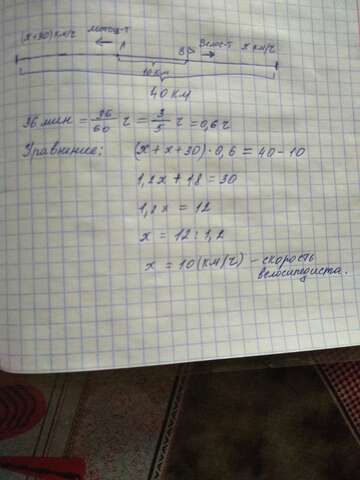 (х+30)км/ч Мотоц-т А В Велос-т х км/ч
10 км
40 км
36 мин = 36/60 ч = 3/5 ч = 0,6 ч
Уравнение: (х + х + 30) · 0,6 = 40 - 10
1,2х + 18 = 30
1,2х = 12
х = 12 : 1,2
х = 10 (км/ч) - скорость
велосипедиста.